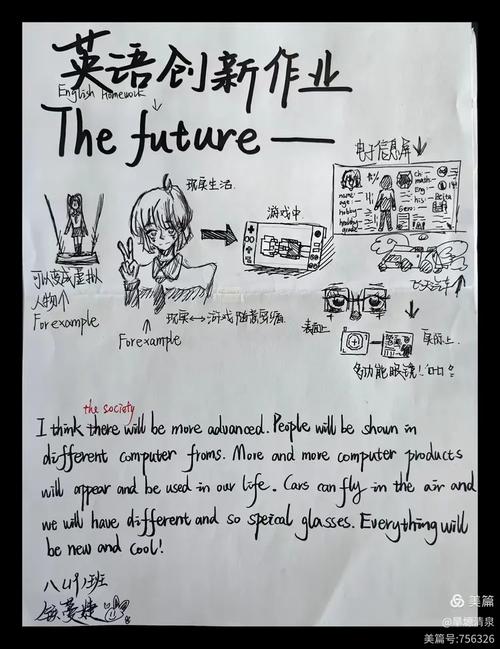 英语创新作业
English Homework
The future —
电子信息屏
现实生活.
游戏中
name:
age:
hobby:
ch:
math:
Eng:
his:
可以变成虚拟
人物个
For example
For example
现实↔游戏随意穿梭
飞天汽车
表面上
实际上.
多功能眼镜!
the society
I think there will be more advanced. People will be shown in
different computer froms. More and more computer products
will appear and be used in our life. Cars can fly in the air and
we will have different and so speical glasses. Everything will
be new and cool!
八(4)班
美篇
@旱塬清泉
美篇号:756326